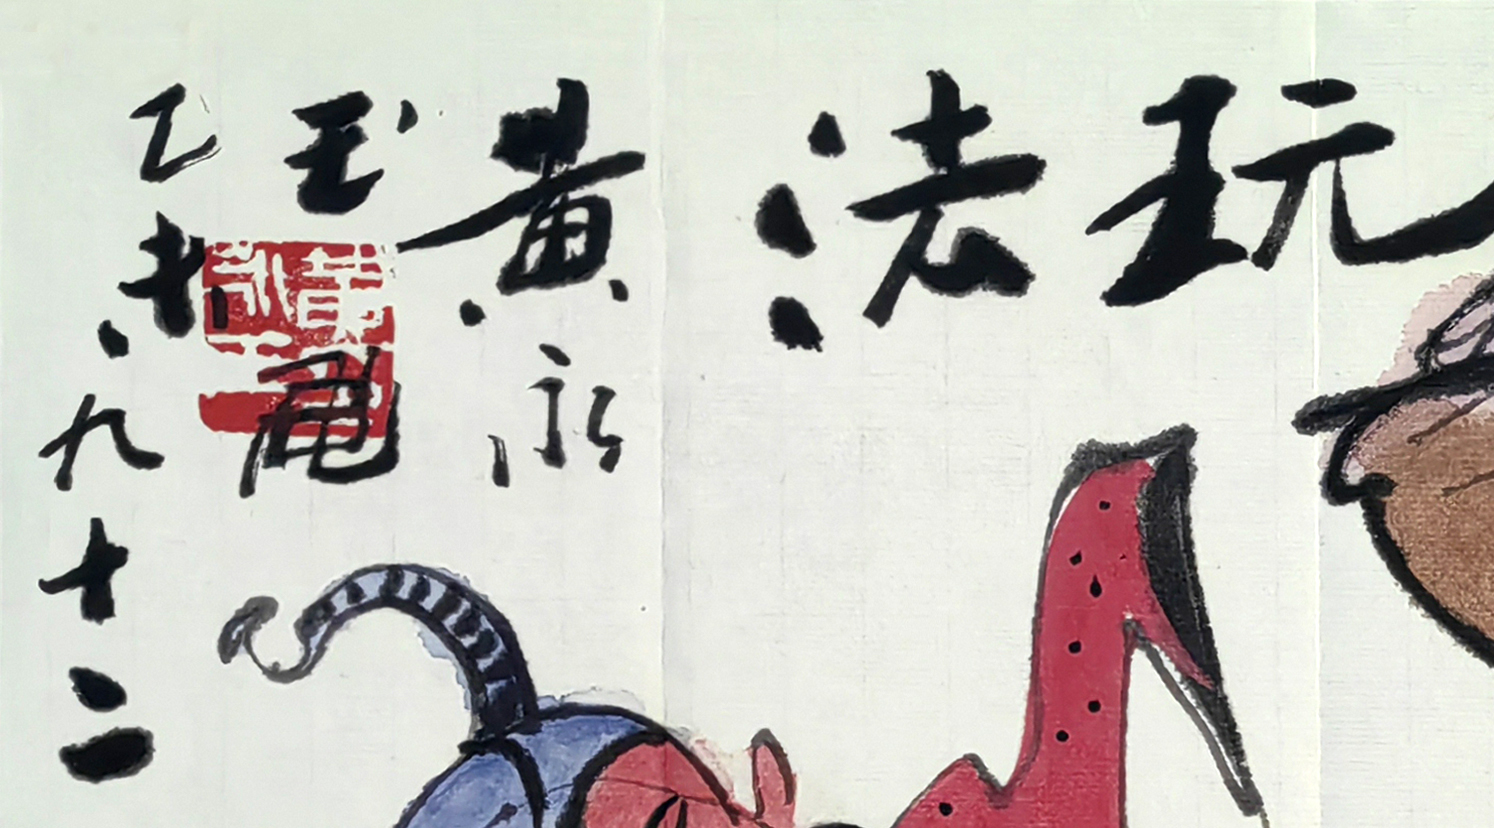 玩法
黄永
玉
乙未
九十二
黄永玉